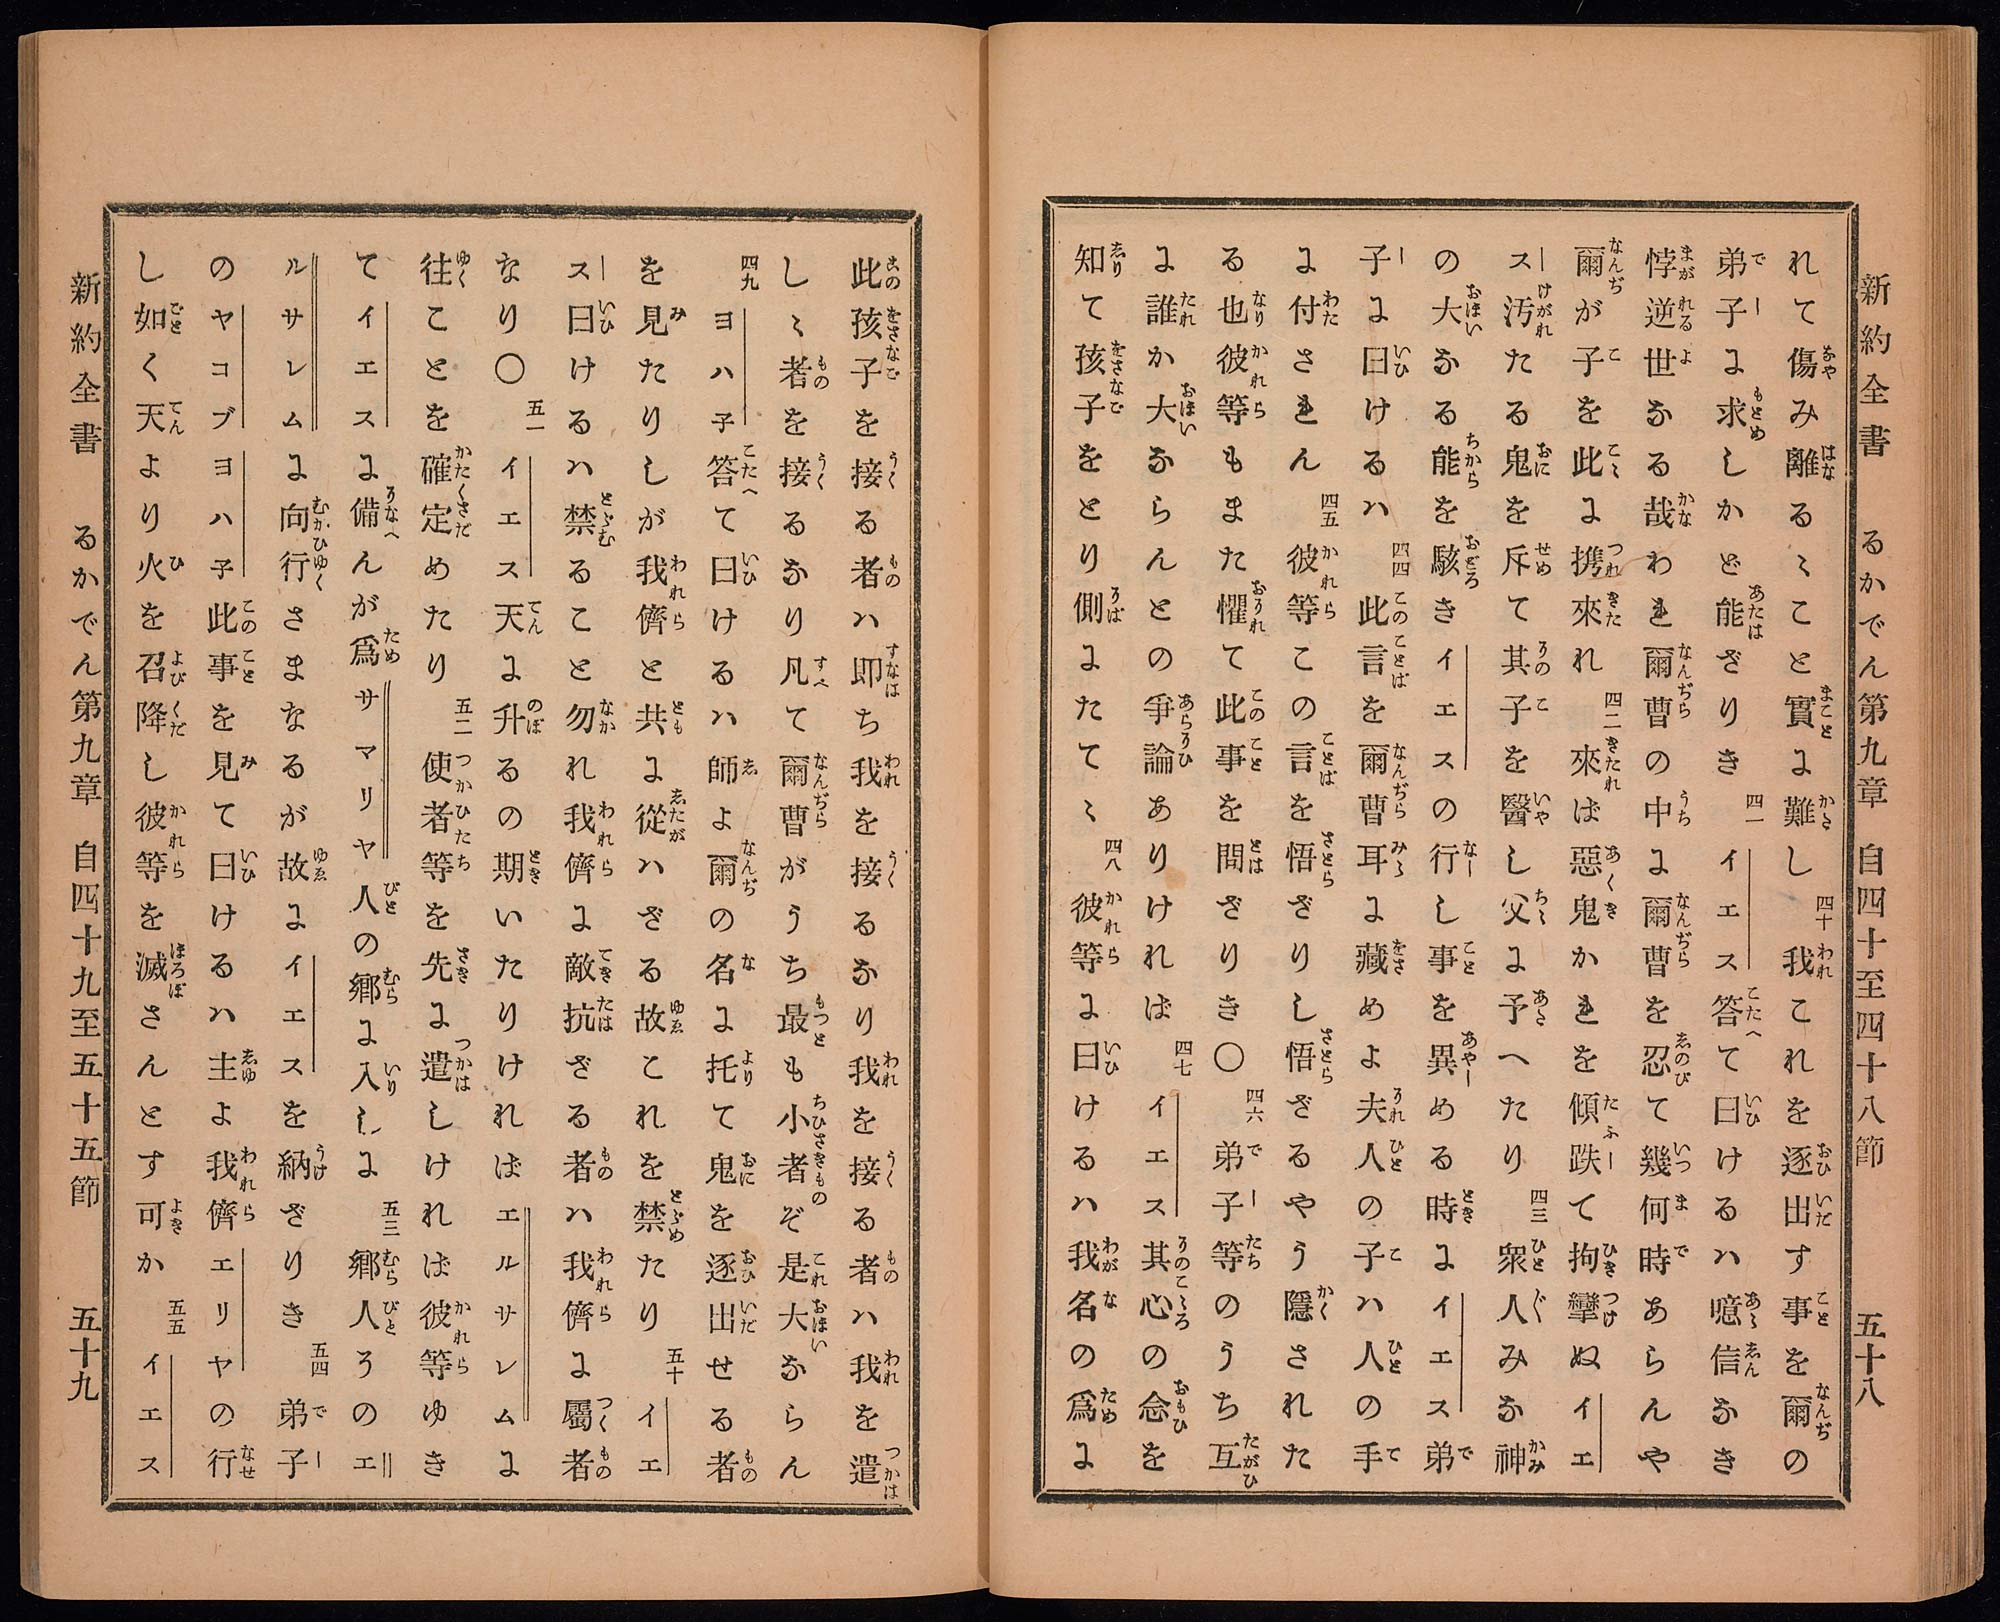 新約全書　るかでん第九章　自四十至四十八節　五十八
れて傷み離るゝこと實に難し四十我これを逐出す事を爾の
弟子に求しかど能ざりき四一イエス答て曰けるハ噫信なき
悖逆世なる哉われ爾曹の中に爾曹を忍て幾何時あらんや
爾が子を此に携來れ四二來ば惡鬼かれを傾跌て拘攣ぬイエ
ス汚たる鬼を斥て其子を醫し父に予へたり四三衆人みな神
の大なる能を駭きイエスの行し事を異める時にイエス弟
子に曰けるハ四四此言を爾曹耳に藏めよ夫人の子ハ人の手
に付されん四五彼等この言を悟ざりし悟ざるやう隱された
る也彼等もまた懼て此事を問ざりき〇四六弟子等のうち互
に誰か大ならんとの爭論ありければ四七イエス其心の念を
知て孩子をとり側にたてゝ四八彼等に曰けるハ我名の爲に
此孩子を接る者ハ即ち我を接るなり我を接る者ハ我を遣
しゝ者を接るなり凡て爾曹がうち最も小者ぞ是大ならん
四九ヨハ子答て曰けるハ師よ爾の名に托て鬼を逐出せる者
を見たりしが我儕と共に從ハざる故これを禁たり五十イエ
ス曰けるハ禁ること勿れ我儕に敵抗ざる者ハ我儕に屬者
なり〇五一イエス天に升るの期いたりければエルサレムに
往ことを確定めたり五二使者等を先に遣しければ彼等ゆき
てイエスに備んが爲サマリヤ人の鄕に入しに五三鄕人そのエ
ルサレムに向行さまなるが故にイエスを納ざりき五四弟子
のヤコブヨハ子此事を見て曰けるハ主よ我儕エリヤの行
し如く天より火を召降し彼等を滅さんとす可か五五イエス
新約全書　るかでん第九章　自四十九至五十五節　五十九